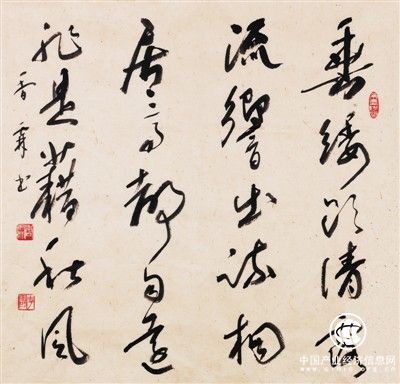 垂緌飲清露
流響出疏桐
居高聲自遠
非是藉秋風
香 书
中国产业经济信息网
www.cinic.org.cn